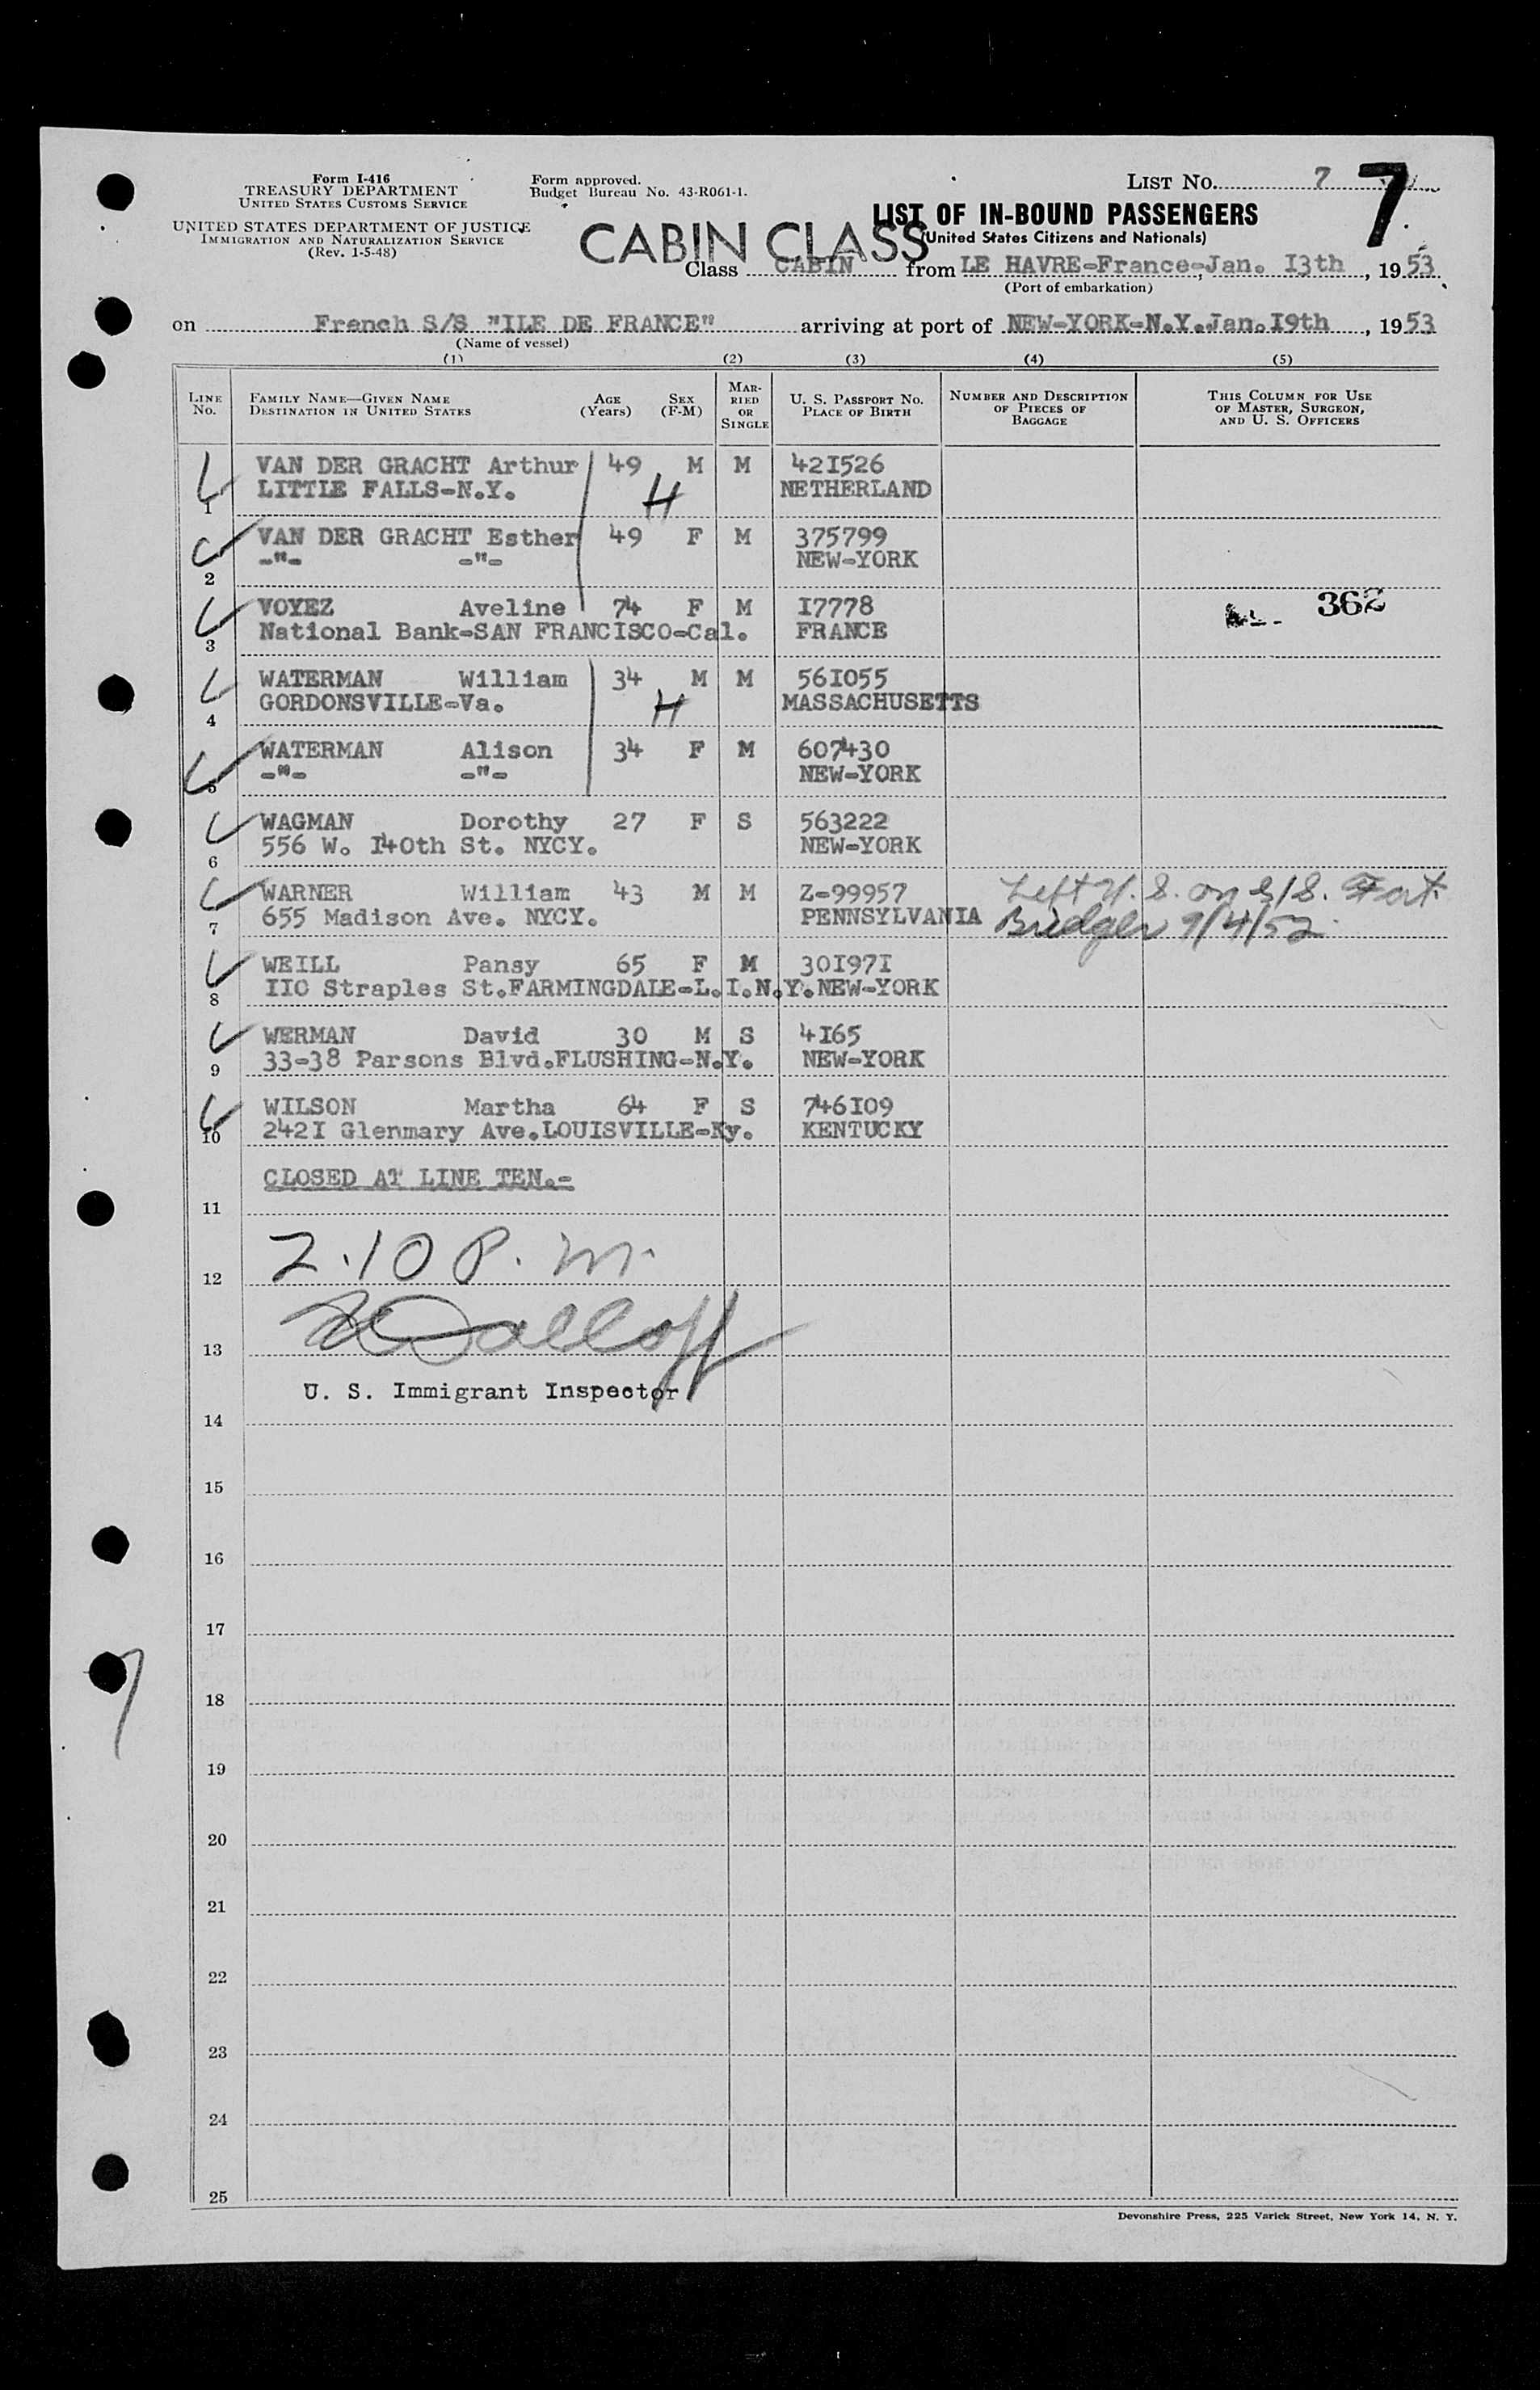 Form I-416
TREASURY DEPARTMENT
UNITED STATES CUSTOMS SERVICE
UNITED STATES DEPARTMENT OF JUSTICE
IMMIGRATION AND NATURALIZATION SERVICE
(Rev. 1-5-48)
Form approved.
Budget Bureau No. 43-R061-1.
LIST NO. 7
7
LIST OF IN-BOUND PASSENGERS
(United States Citizens and Nationals)
CABIN CLASS
Class CABIN from LE HAVRE-France-Jan. I3th, 1953
(Port of embarkation)
on French S/S "ILE DE FRANCE" arriving at port of NEW-YORK-N.Y.Jan.I9th, 1953
(Name of vessel)
(1) (2) (3) (4) (5)
LINE No. FAMILY NAME—GIVEN NAME DESTINATION IN UNITED STATES AGE (Years) SEX (F-M) MARRIED OR SINGLE U. S. PASSPORT NO. PLACE OF BIRTH NUMBER AND DESCRIPTION OF PIECES OF BAGGAGE THIS COLUMN FOR USE OF MASTER, SURGEON, AND U. S. OFFICERS
VAN DER GRACHT Arthur 49 M M 42I526
1 LITTLE FALLS-N.Y. H NETHERLAND
VAN DER GRACHT Esther 49 F M 375799
2 -"- -"- NEW-YORK
VOYEZ Aveline 74 F M I7778 362
3 National Bank-SAN FRANCISCO-Cal. FRANCE
WATERMAN William 34 M M 56I055
4 GORDONSVILLE-Va. H MASSACHUSETTS
WATERMAN Alison 34 F M 607430
5 -"- -"- NEW-YORK
WAGMAN Dorothy 27 F S 563222
6 556 W. I40th St. NYCY. NEW-YORK
WARNER William 43 M M Z-99957 Left U. S. on S/S. Fort
7 655 Madison Ave. NYCY. PENNSYLVANIA Bridger 9/4/52
WEILL Pansy 65 F M 30I97I
8 IIO Straples St.FARMINGDALE-L.I.N.Y. NEW-YORK
WERMAN David 30 M S 4I65
9 33-38 Parsons Blvd.FLUSHING-N.Y. NEW-YORK
WILSON Martha 64 F S 746I09
10 242I Glenmary Ave.LOUISVILLE-Ky. KENTUCKY
CLOSED AT LINE TEN.-
11
12 2.10 P. m.
13
U. S. Immigrant Inspector
14
15
16
17
18
19
20
21
22
23
24
25
7
Devonshire Press, 225 Varick Street, New York 14, N. Y.